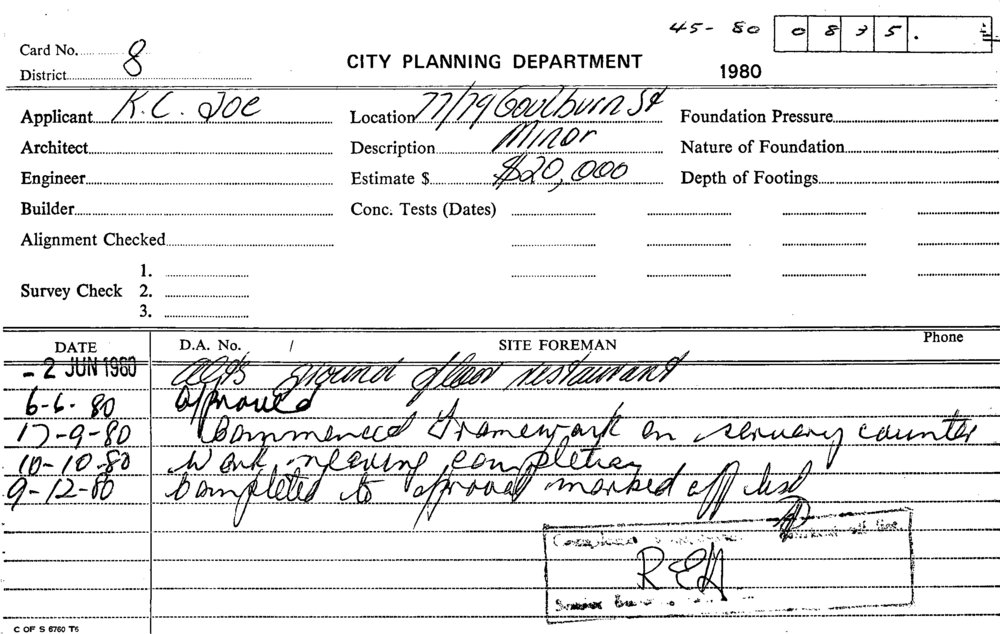 45-80 0835.
Card No. 8
District
CITY PLANNING DEPARTMENT
1980
Applicant K.C. JOE
Location 77/79 Goulburn St
Foundation Pressure
Architect
Description Minor
Nature of Foundation
Engineer
Estimate $ $20,000
Depth of Footings
Builder
Conc. Tests (Dates)
Alignment Checked
Survey Check 1.
2.
3.
DATE D.A. No. / SITE FOREMAN Phone
- 2 JUN 1980 alts ground floor restaurant
6-6-80 approved
17-9-80 Commenced framework on servery counter
10-10-80 Work nearing completion
9-12-80 Completed to approval marked off list
Completed
REH
C OF S 6760 T6